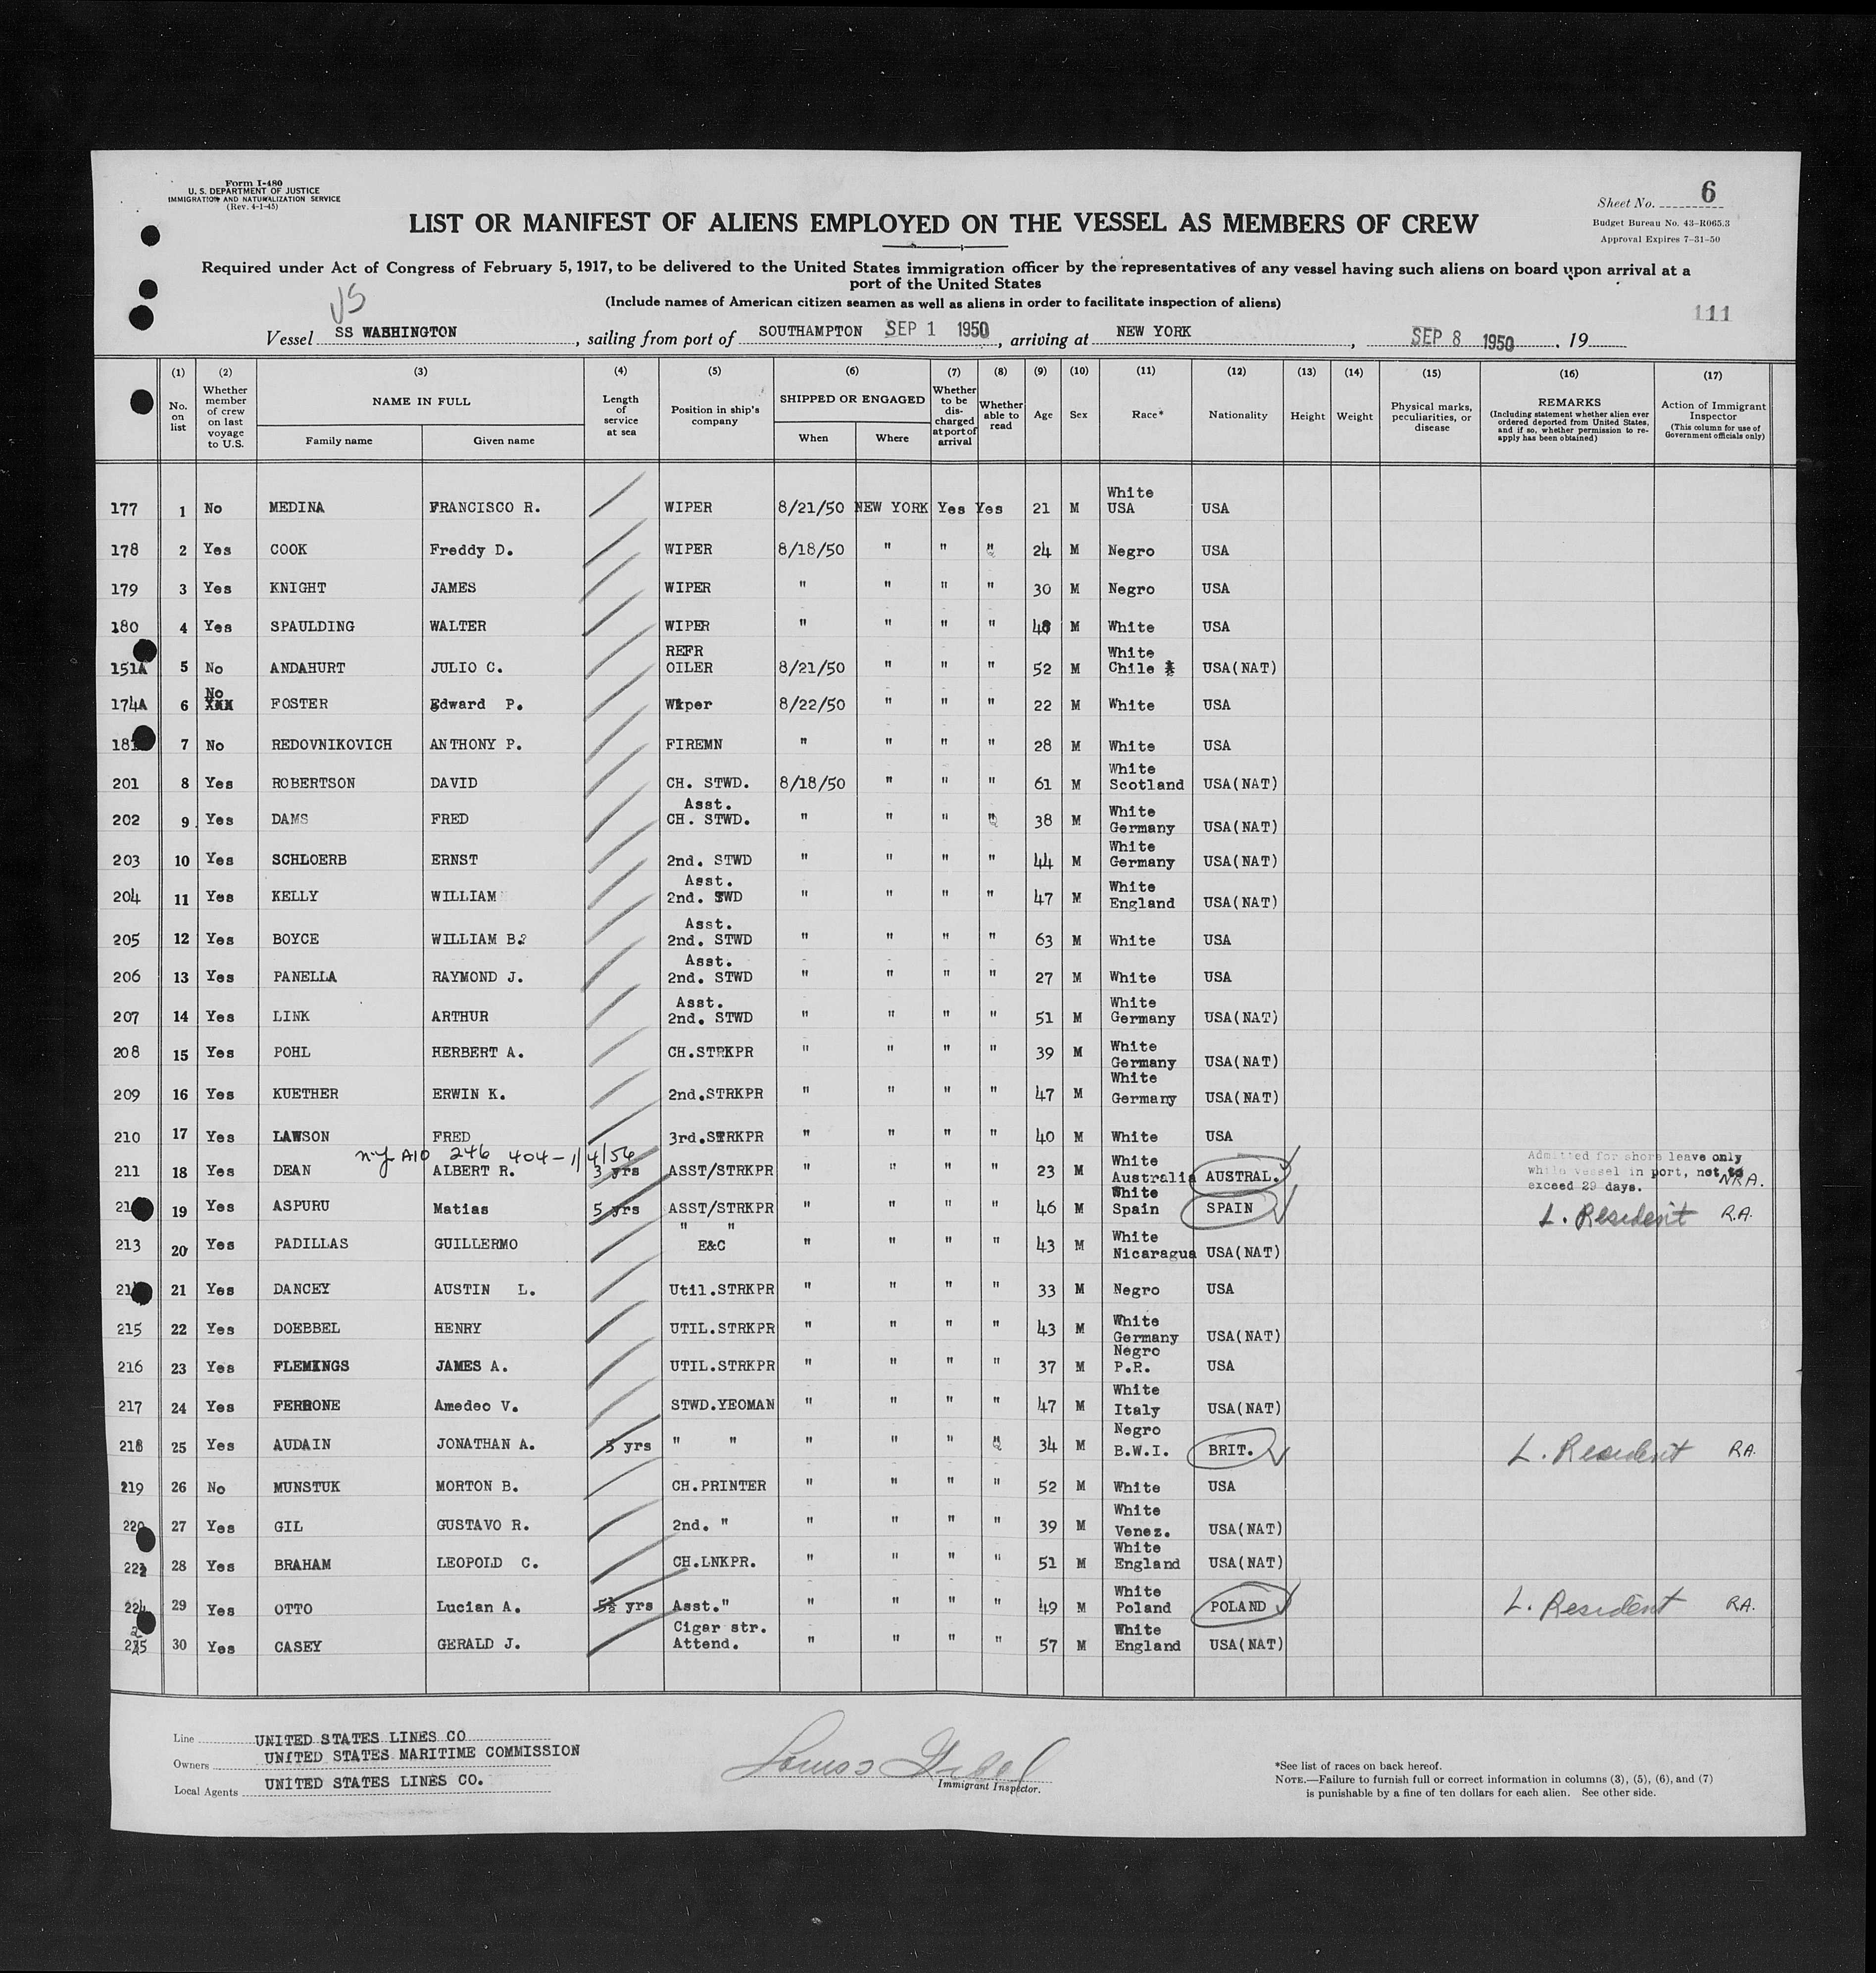 Form I-480
U. S. DEPARTMENT OF JUSTICE
IMMIGRATION AND NATURALIZATION SERVICE
(Rev. 4-1-45)
Sheet No. 6
Budget Bureau No. 43-R065.3
Approval Expires 7-31-50
LIST OR MANIFEST OF ALIENS EMPLOYED ON THE VESSEL AS MEMBERS OF CREW
Required under Act of Congress of February 5, 1917, to be delivered to the United States immigration officer by the representatives of any vessel having such aliens on board upon arrival at a
port of the United States
(Include names of American citizen seamen as well as aliens in order to facilitate inspection of aliens)
111
Vessel SS WASHINGTON, sailing from port of SOUTHAMPTON SEP 1 1950, arriving at NEW YORK, SEP 8 1950, 19
(1) (2) (3) (4) (5) (6) (7) (8) (9) (10) (11) (12) (13) (14) (15) (16) (17)
No. on list
Whether member of crew on last voyage to U.S.
NAME IN FULL
Family name
Given name
Length of service at sea
Position in ship's company
SHIPPED OR ENGAGED
When
Where
Whether to be discharged at port of arrival
Whether able to read
Age
Sex
Race*
Nationality
Height
Weight
Physical marks, peculiarities, or disease
REMARKS
(Including statement whether alien ever ordered deported from United States, and if so, whether permission to re-apply has been obtained)
Action of Immigrant Inspector
(This column for use of Government officials only)
177 1 No MEDINA FRANCISCO R. WIPER 8/21/50 NEW YORK Yes Yes 21 M White USA USA
178 2 Yes COOK Freddy D. WIPER 8/18/50 " " " 24 M Negro USA
179 3 Yes KNIGHT JAMES WIPER " " " " 30 M Negro USA
180 4 Yes SPAULDING WALTER WIPER " " " " 48 M White USA
151A 5 No ANDAHURT JULIO C. REFR OILER 8/21/50 " " " 52 M White Chile USA(NAT)
174A 6 No FOSTER Edward P. Wiper 8/22/50 " " " 22 M White USA
7 No REDOVNIKOVICH ANTHONY P. FIREMN " " " " 28 M White USA
201 8 Yes ROBERTSON DAVID CH. STWD. 8/18/50 " " " 61 M White Scotland USA(NAT)
202 9 Yes DAMS FRED Asst. CH. STWD. " " " " 38 M White Germany USA(NAT)
203 10 Yes SCHLOERB ERNST 2nd. STWD " " " " 44 M White Germany USA(NAT)
204 11 Yes KELLY WILLIAM Asst. 2nd. STWD " " " " 47 M White England USA(NAT)
205 12 Yes BOYCE WILLIAM B. Asst. 2nd. STWD " " " " 63 M White USA
206 13 Yes PANELLA RAYMOND J. Asst. 2nd. STWD " " " " 27 M White USA
207 14 Yes LINK ARTHUR Asst. 2nd. STWD " " " " 51 M White Germany USA(NAT)
208 15 Yes POHL HERBERT A. CH.STRKPR " " " " 39 M White Germany USA(NAT)
209 16 Yes KUETHER ERWIN K. 2nd.STRKPR " " " " 47 M White Germany USA(NAT)
210 17 Yes LAWSON FRED 3rd.STRKPR " " " " 40 M White USA
A10 246 404-1/4/56
211 18 Yes DEAN ALBERT R. 3 yrs ASST/STRKPR " " " " 23 M White Australia AUSTRAL. Admitted for shore leave only while vessel in port, not to exceed 29 days. NRA.
19 Yes ASPURU Matias 5 yrs ASST/STRKPR " " " " 46 M White Spain SPAIN L. Resident R.A.
213 20 Yes PADILLAS GUILLERMO " " E&C " " " " 43 M White Nicaragua USA(NAT)
21 Yes DANCEY AUSTIN L. Util.STRKPR " " " " 33 M Negro USA
215 22 Yes DOEBBEL HENRY UTIL.STRKPR " " " " 43 M White Germany USA(NAT)
216 23 Yes FLEMINGS JAMES A. UTIL.STRKPR " " " " 37 M Negro P.R. USA
217 24 Yes FERRONE Amedeo V. STWD.YEOMAN " " " " 47 M White Italy USA(NAT)
218 25 Yes AUDAIN JONATHAN A. 5 yrs " " " " " " 34 M Negro B.W.I. BRIT. L. Resident RA.
219 26 No MUNSTUK MORTON B. CH.PRINTER " " " " 52 M White USA
220 27 Yes GIL GUSTAVO R. 2nd. " " " " " 39 M White Venez. USA(NAT)
28 Yes BRAHAM LEOPOLD C. CH.LNKPR. " " " " 51 M White England USA(NAT)
224 29 Yes OTTO Lucian A. 5½ yrs Asst." " " " " 49 M White Poland POLAND L. Resident RA.
30 Yes CASEY GERALD J. Cigar str. Attend. " " " " 57 M White England USA(NAT)
Line UNITED STATES LINES CO
Owners UNITED STATES MARITIME COMMISSION
Local Agents UNITED STATES LINES CO.
Immigrant Inspector.
*See list of races on back hereof.
NOTE.—Failure to furnish full or correct information in columns (3), (5), (6), and (7)
is punishable by a fine of ten dollars for each alien. See other side.